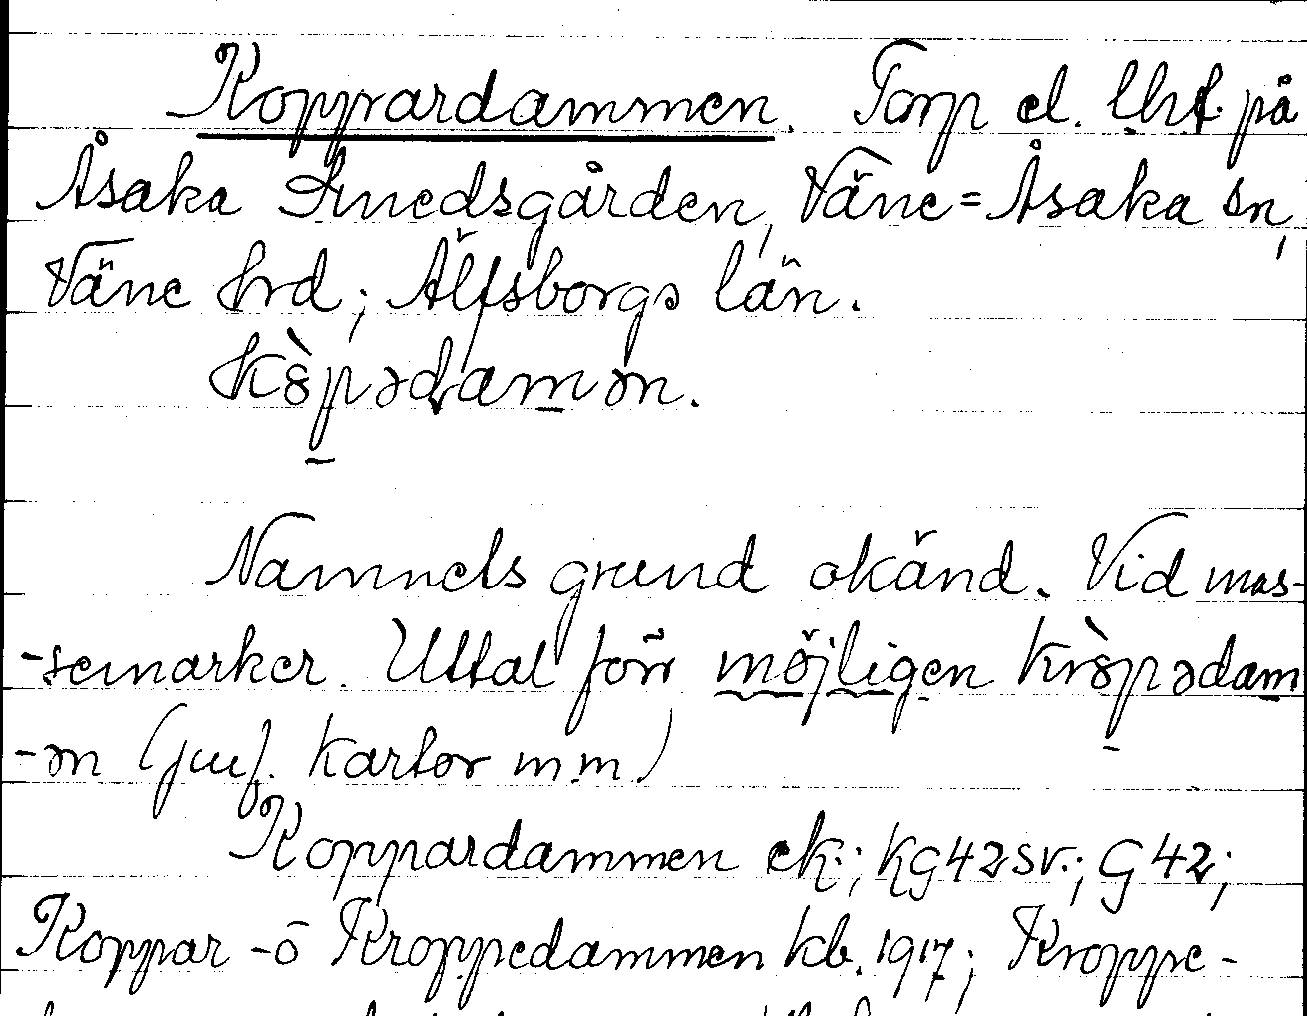 Koppardammen. Torp el. lht. på
Åsaka Smedsgården, Väne=Åsaka sn,
Väne hrd; Älfsborgs län.
kòpədamən.
Namnets grund okänd. Vid mos-
-semarker. Uttal förr möjligen kròpədam
-ən (jmf. kartor m.m.)
Koppardammen ek.; KG42SV.; G42;
Koppar -o Kroppedammen kb. 1917; Kroppe-